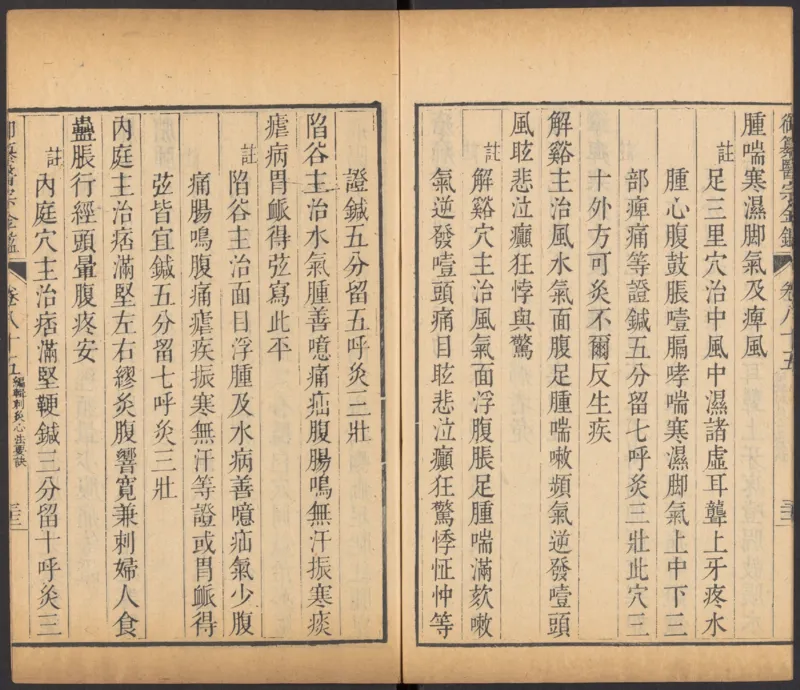 腫喘寒濕脚氣及痺風
註足三里穴治中風中濕諸虛耳聾上牙疼水
腫心腹鼓脹噎膈哮喘寒濕脚氣上中下三
部痺痛等證鍼五分留七呼灸三壯此穴三
十外方可灸不爾反生疾
解谿主治風水氣面腹足腫喘嗽頻氣逆發噎頭
風眩悲泣癲狂悸與驚
註解谿穴主治風氣面浮腹脹足腫喘滿欬嗽
氣逆發噎頭痛目眩悲泣癲狂驚悸怔忡等
證鍼五分留五呼灸三壯
陷谷主治水氣腫善噫痛疝腹腸鳴無汗振寒痰
瘧病胃䘑得弦瀉此平
註陷谷主治面目浮腫及水病善噫疝氣少腹
痛腸鳴腹痛瘧疾振寒無汗等證或胃䘑得
弦皆宜鍼五分留七呼灸三壯
內庭主治痞滿堅左右繆灸腹響寬兼刺婦人食
蠱脹行經頭暈腹疼安
註內庭穴主治痞滿堅鞕鍼三分留十呼灸三
御纂醫宗金鑑 卷八十五 編輯刺灸心法要訣 三三